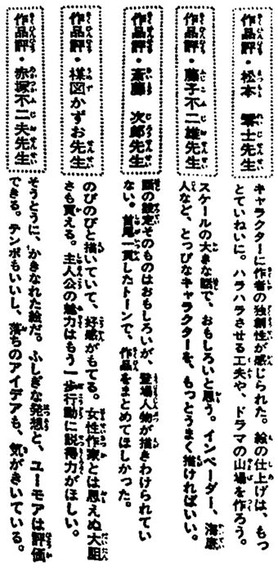 作品評・松本零士先生
キャラクターに作者の独創性が感じられた。絵の仕上げは、もっ
とていねいに。ハラハラさせる工夫や、ドラマの山場を作ろう。
作品評・藤子不二雄先生
スケールの大きな話で、おもしろいと思う。インベーダー、海底
人など、とっぴなキャラクターを、もっとうまく描ければいい。
作品評・斎藤次郎先生
話の設定そのものはおもしろいが、登場人物が描きわけられてい
ない。首尾一貫したトーンで、作品をまとめてほしかった。
作品評・楳図かずお先生
のびのびと描いていて、好感がもてる。女性作家とは思えぬ大胆
さも買える。主人公の魅力はもう一歩行動に説得力がほしい。
作品評・赤塚不二夫先生
そうとうに、かきなれた絵だ。ふしぎな発想と、ユーモアは評価
できる。テンポもいいし、落ちのアイデアも、気がきいている。